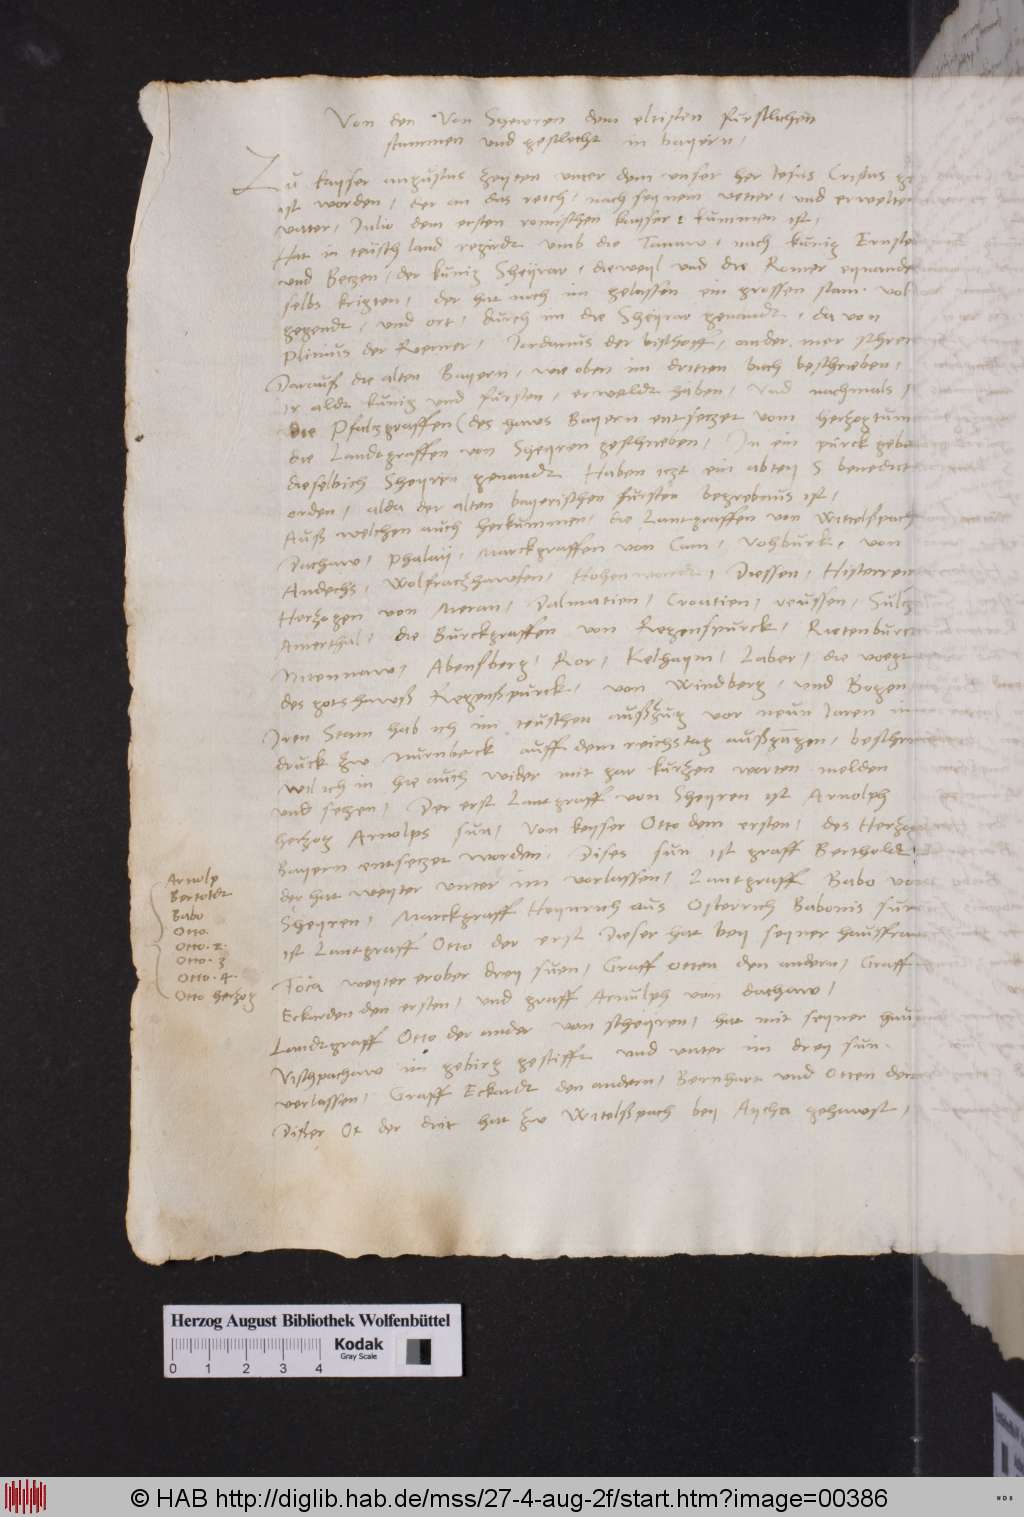 Von den Von Scheyren dem eltisten furstlichen
stammen und geslecht in bayern /
Zu kayser augustus zeyten unter dem unser her Jesus Cristus
ist worden / der an das reich / nach seynem vetter / und erwelten
vater / Julio dem ersten romischen kayser kummen ist /
Hat in teusch land regirdt umb die Tonaw / nach kunig Ernste
und Beczen / der kunig Scheyrar / dieweyl und die Romer eynander
selbs krigten / der hat nach im gelassen ein grossen stam vol
gegendt / und ort / durch im die Scheyrar genandt / da von
Plinius der Roemer / Jordanus der bischoff / ander mer
Darauß die alten Bayern / wie oben im dritten buch beschrieben /
ir aldt kunig und fursten / erweldt haben / und nachmals /
die Pfalczgraffen (des haws Bayern entseczet vom herczogtum
die Landtgraffen von Scheyren geschrieben / In ein purck
dieselbich Scheyren genandt Haben iczt ein abtey S benedict
orden / alda der alten bayerischen fursten begrebnus ist /
Auß welchen auch herkummen / die Lantgraffen von Wittelßpach
Dachaw / Phalaii / Marckgraffen von Cam / Vohburk / von
Andechs / Wolfraczhawsen / Hohenwardt / Diessen / Histerren
Herczogen von Meran / Dalmatien / Croatien / reussen / Sulcz
Amerthal / die Burckgraffen von Regenspurck / Rietenburck
Nitennaw / Abensberg / Ror / Kelhaym / Laber / die voegt
des gotshawß Regenßpurck / von Windberg / und Bogen
Iren Stam hab ich im teuschen außzug vor neun Jaren in
druck zw nurnberck auff dem reichstag außgangen /
Wil ich in hie auch wider mit gar kurczen worten melden
und seczen / Der erst Lantgraff von Scheyren ist Arnolph
herczog Arnolphs sun / Von keyser Otto dem ersten / des Herczog
Bayern entseczet worden / Dises sun ist graff Bertholdt
der hat weyter unter im vorlassen / Lantgraff Babo von
Scheyren / Marckgraff Heynrich aus Osterrich Babonis sun
ist Lantgraff Otto der erst Dieser hat bey seyner hausfraw
Toca weyter erober drey suen / Graff Otten den andern / Graff
Eckarden den ersten / und graff Arnulph von dachaw /
Landtgraff Otto der ander von Scheyren / hat mit seyner
Vischpachaw im gebirg gestifft und unter im drey sun
verlassen / Graff Eckardt den andern / Bernhart und Otten den
Dißer Ot der drit hat zw Witelßpach bey Aycha gehawst /
Arnolp
Bertoldt
Babo
Otto
Otto. 2.
Otto. 3
Otto. 4.
Otto herczog
Herzog August Bibliothek Wolfenbüttel
0 1 2 3 4
Kodak
Gray Scale
© HAB http://diglib.hab.de/mss/27-4-aug-2f/start.htm?image=00386